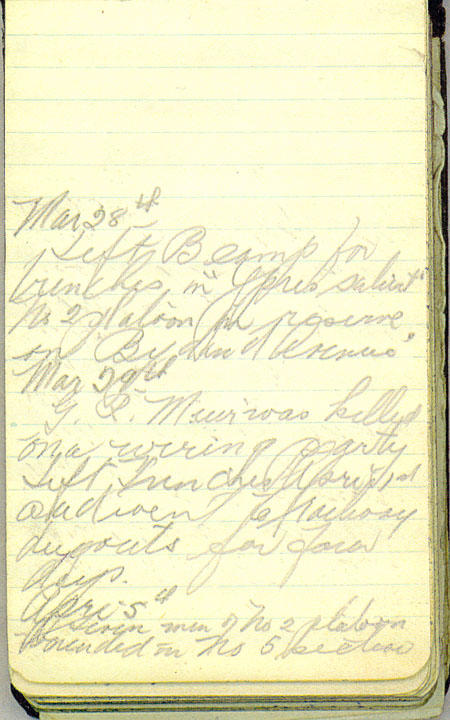 Mar 28th
Left B camp for
trenches in "Ypres salient"
No 2 platoon in reserve
on "Byland Avenue"
Mar 29th
G. Muir was killed
on a wiring party
Left trenches April 1st
and went to Railway
dugouts for four
days.
April 5th
Seven men of No 2 platoon
wounded in No 5 section